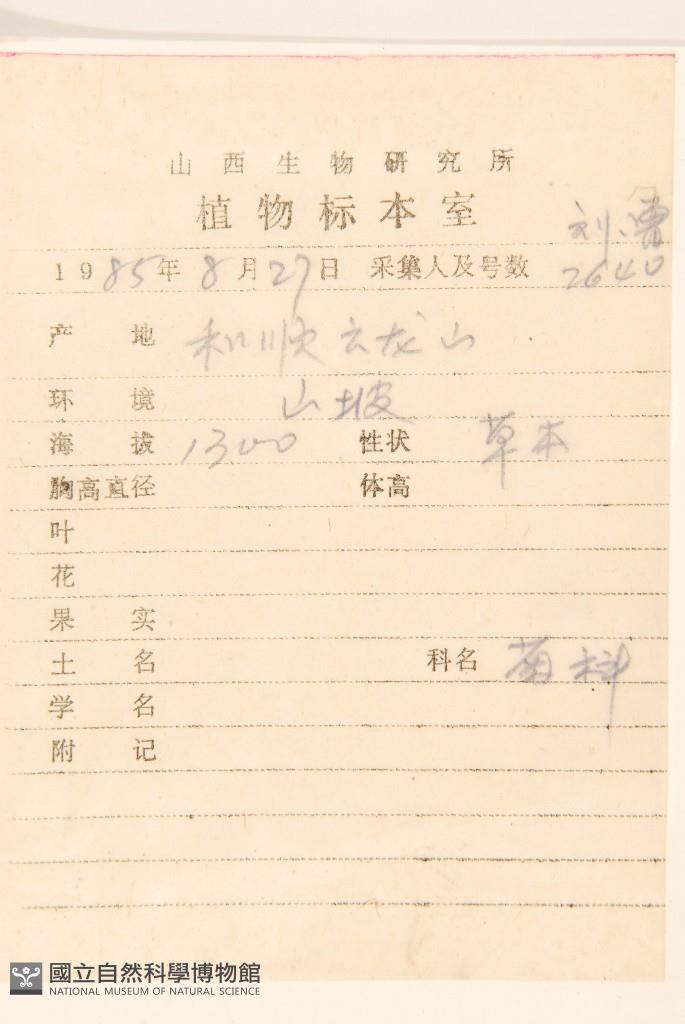 山西生物研究所
植物标本室
刘、曹
1985年8月27日 采集人及号数 2640
产地 和顺云龙山
环境 山坡
海拔 1300 性状 草本
胸高直径 体高
叶
花
果实
土名 科名 菊科
学名
附记
國立自然科學博物館
NATIONAL MUSEUM OF NATURAL SCIENCE